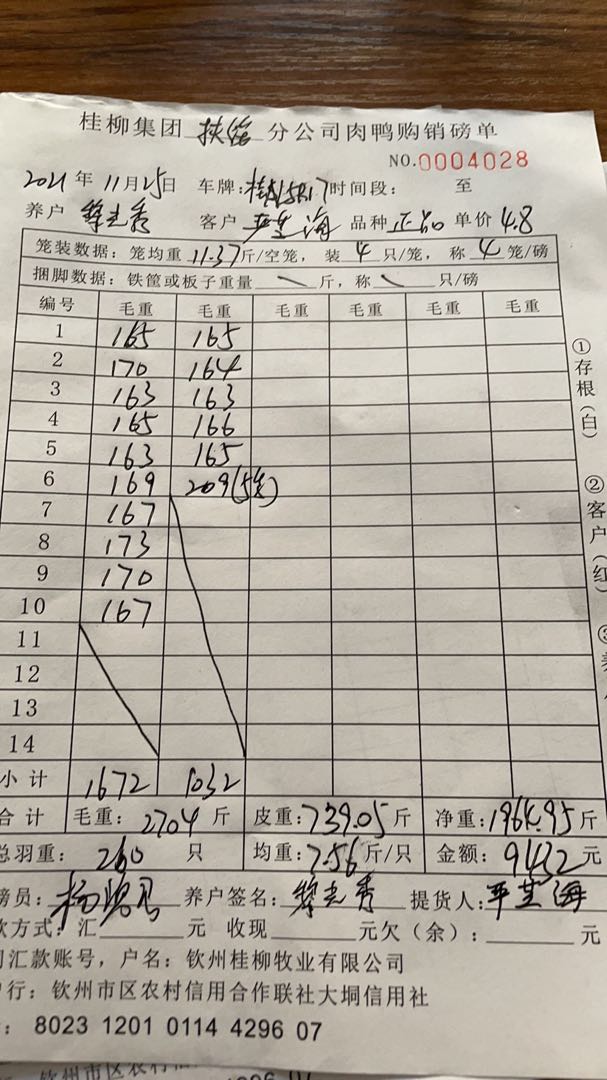 桂柳集团 扶 分公司肉鸭购销磅单
NO.0004028
2021 年 11月25日 车牌: 时间段: 至
养户 客户 海 品种 正品 单价 4.8
笼装数据: 笼均重 11.37 斤/空笼, 装 4 只/笼, 称 4 笼/磅
捆脚数据: 铁筐或板子重量 斤, 称 只/磅
编号 毛重 毛重 毛重 毛重 毛重 毛重
1 165 165
2 170 164
3 163 163
4 165 166
5 163 165
6 169 209(5笼)
7 167
8 173
9 170
10 167
11
12
13
14
小计 1672 1032
合计 毛重: 2704 斤 皮重: 739.05 斤 净重: 1964.95 斤
总羽重: 260 只 均重: 7.56 斤/只 金额: 9432 元
磅员: 杨 养户签名: 提货人: 海
款方式: 汇 元 收现 元欠(余): 元
司汇款账号, 户名: 钦州桂柳牧业有限公司
户行: 钦州市区农村信用合作联社大垌信用社
: 8023 1201 0114 4296 07
①存根(白)
②客户(红)
③养
钦州市区农村信